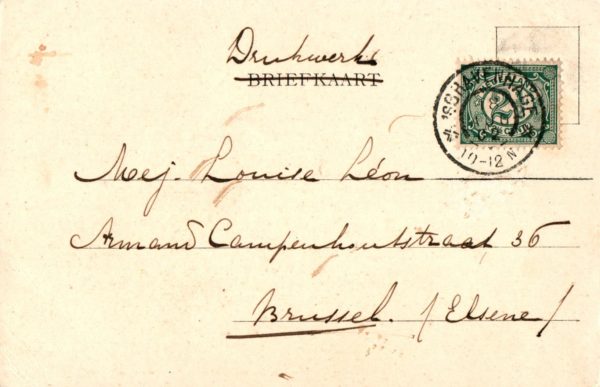 Drukwerk
BRIEFKAART
'SGRAVENHAGE
10-12 N
Mej. Louise Léon
Armand Campenhoutstraat 36
Brussel. /Elsene/